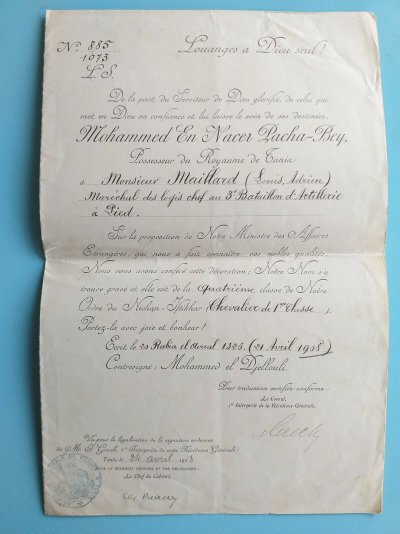 N° 885
1073
L. S.
Louanges à Dieu seul!
De la part du Serviteur de Dieu glorifié, de celui qui
met en Dieu sa confiance et lui laisse le soin de ses destinées.
Mohammed En Nacer Pacha-Bey,
Possesseur du Royaume de Tunis
à Monsieur Maillard (Louis, Adrien)
Maréchal des logis chef au 3e Bataillon d'Artillerie
à Pied.
Sur la proposition de Notre Ministre des Affaires
Etrangères qui nous a fait connaître vos nobles qualités,
Nous vous avons conféré cette décoration; Notre Nom s'y
trouve gravé et elle est de la quatrième classe de Notre
Ordre du Nichan-Iftikhar (Chevalier de 1ère Classe).
Portez-la avec joie et bonheur!
Ecrit le 20 Rabia el Aoual 1326 (21 Avril 1908)
Contresigné: Mohammed el Djellouli.
Pour traduction certifiée conforme:
Le Consul,
1er Interprète de la Résidence Générale,
Vu pour la légalisation de la signature ci-dessus
de M. S. Grech, 1er Interprète de cette Résidence Générale:
Tunis, le 24 avril 1908
POUR LE RÉSIDENT GÉNÉRAL ET PAR DÉLÉGATION:
Le Chef du Cabinet